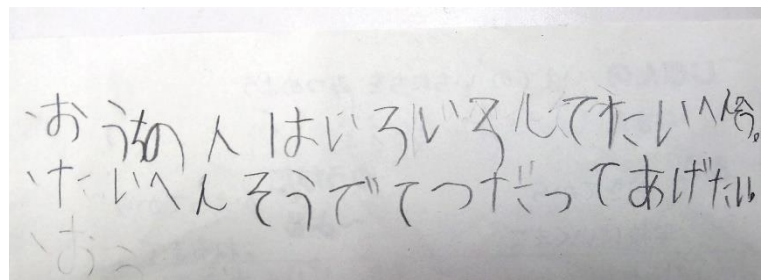 おうちの人はいろいろしてたいへんそう。
たいへんそうでてつだってあげたい。
おう